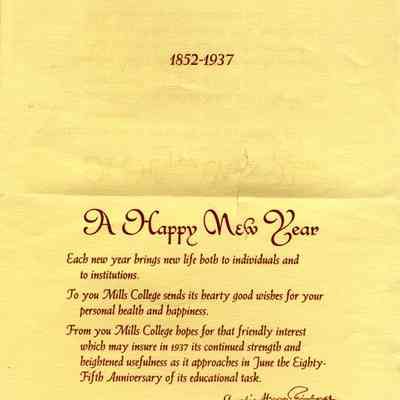 1852-1937
A Happy New Year
Each new year brings new life both to individuals and
to institutions.
To you Mills College sends its hearty good wishes for your
personal health and happiness.
From you Mills College hopes for that friendly interest
which may insure in 1937 its continued strength and
heightened usefulness as it approaches in June the Eighty-
Fifth Anniversary of its educational task.